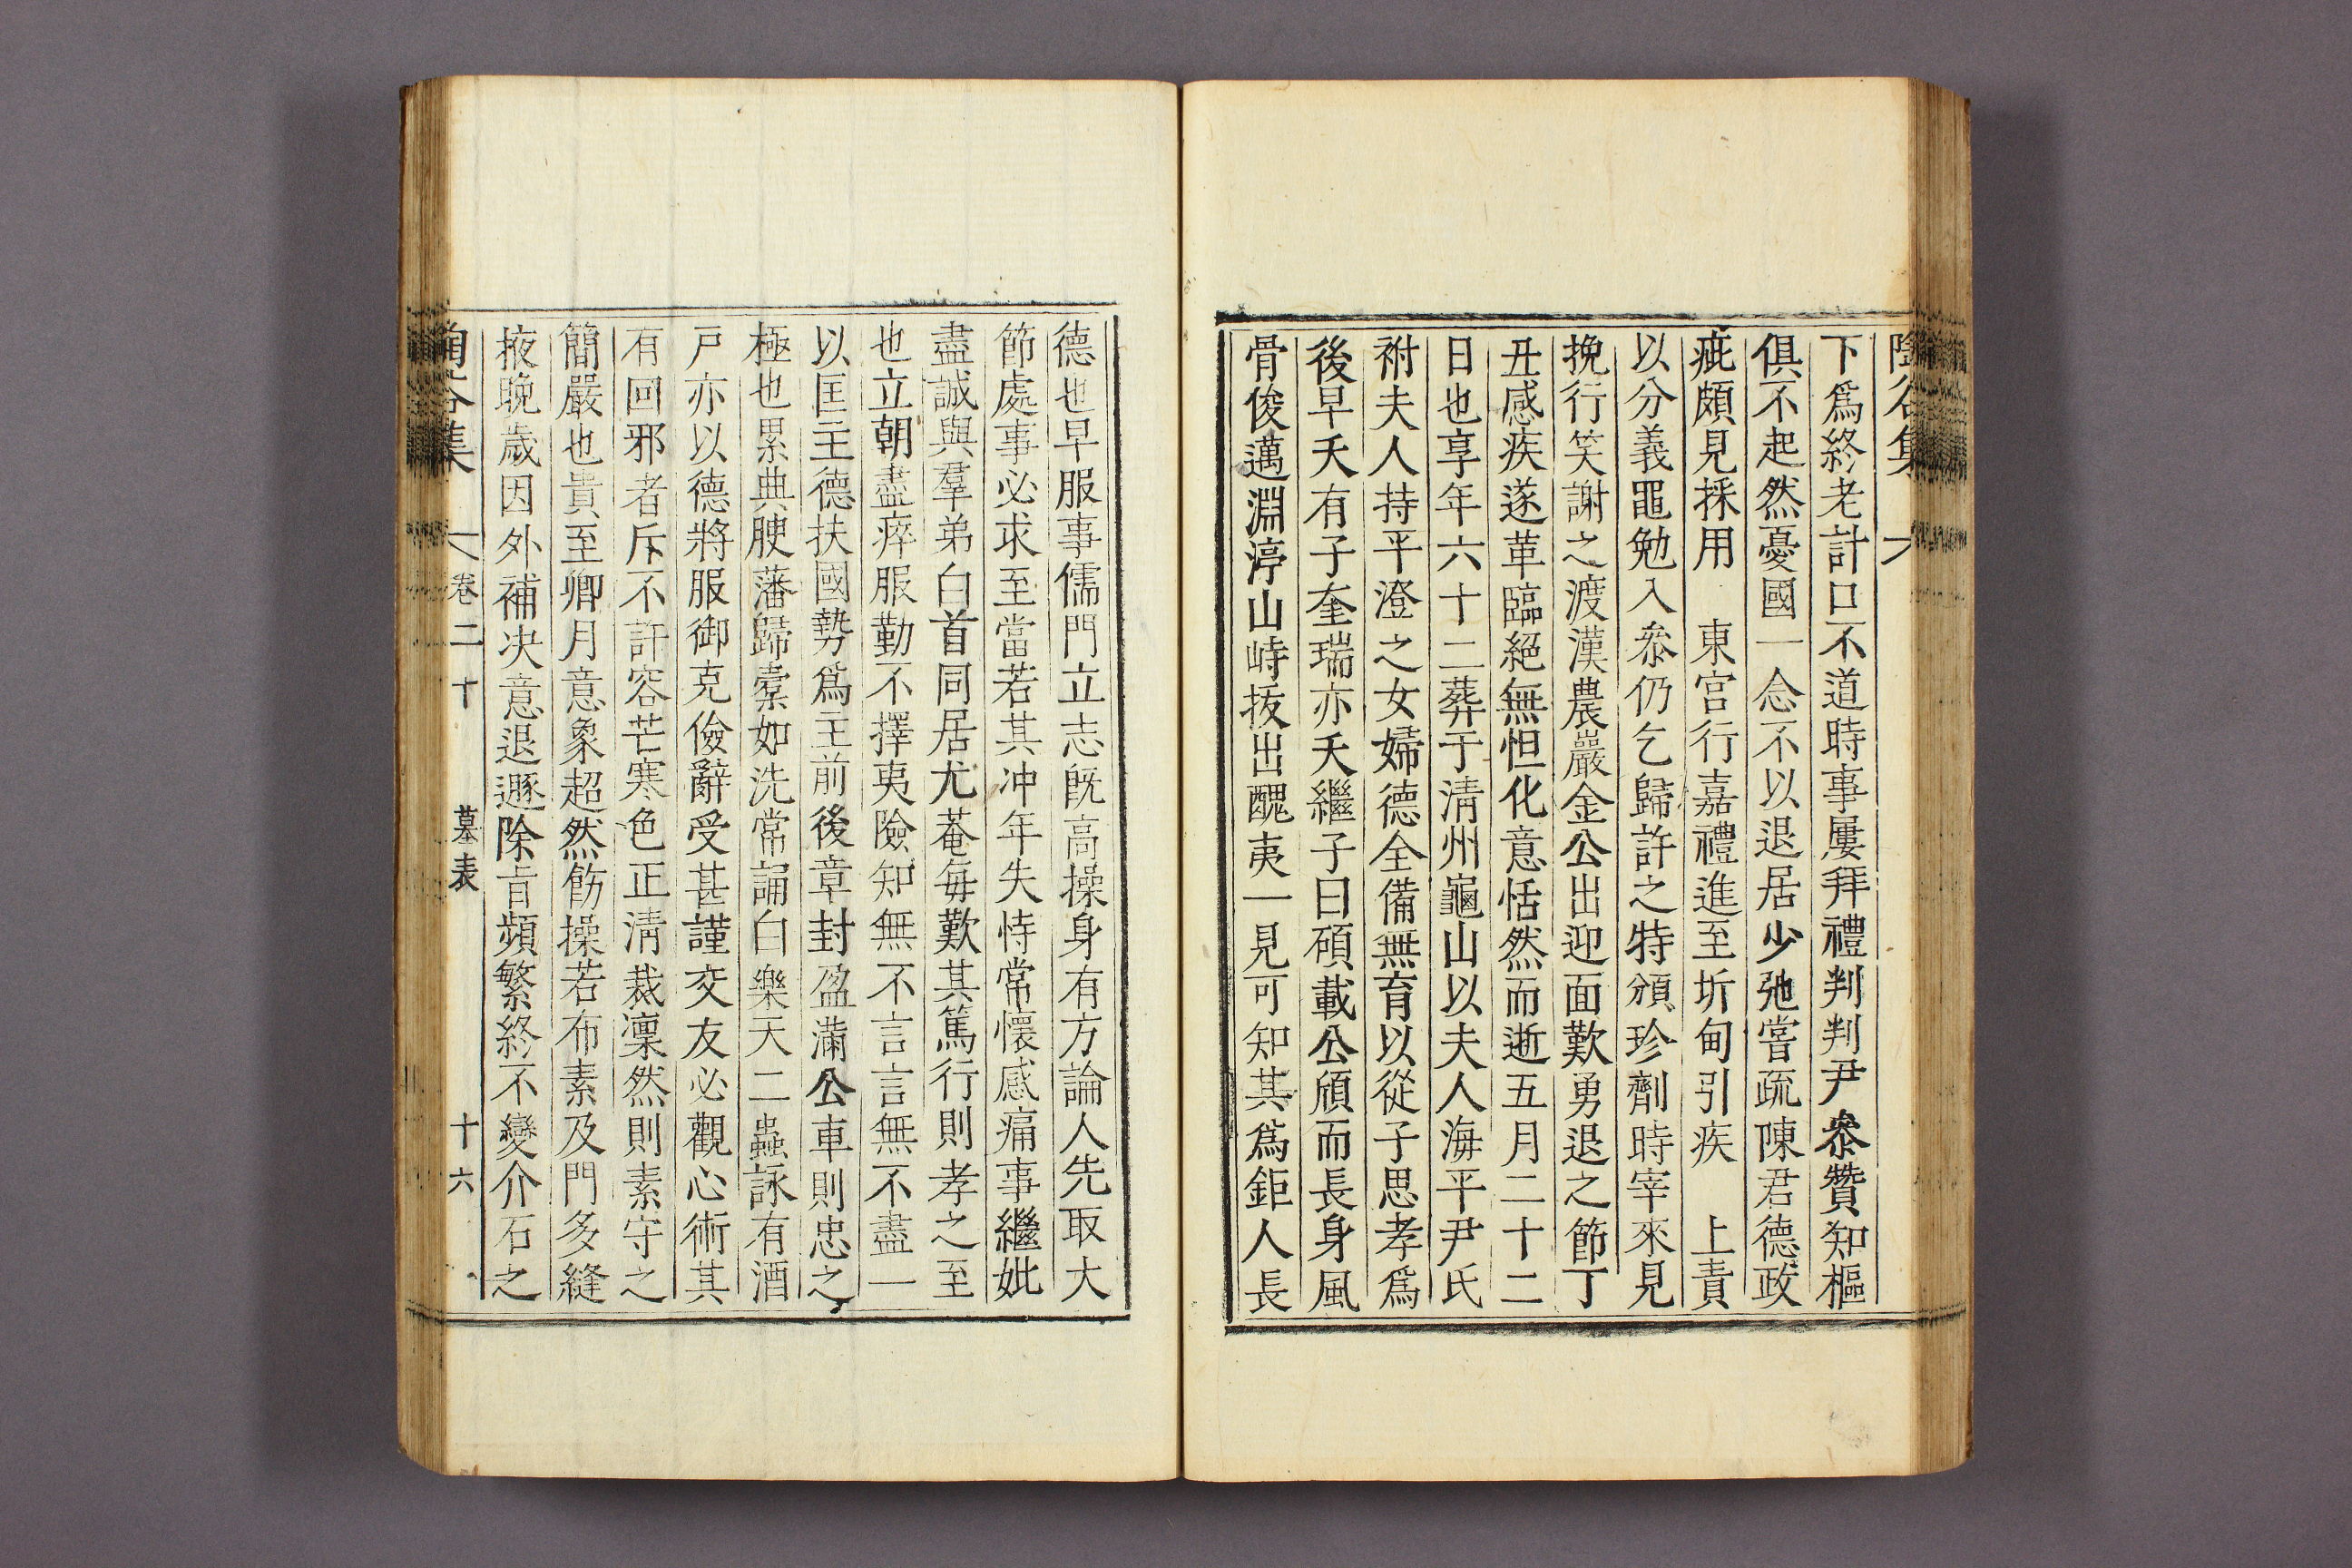 陶谷集
下爲終老計口不道時事屢拜禮判判尹叅贊知樞
俱不起然憂國一念不以退居少弛嘗疏陳君德政
疵頗見採用 東宮行嘉禮進至圻甸引疾 上責
以分義黽勉入叅仍乞歸許之特頒珍劑時宰來見
挽行笑謝之渡漢農巖金公出迎面歎勇退之節丁
丑感疾遂革臨絕無怛化意恬然而逝五月二十二
日也享年六十二葬于淸州龜山以夫人海平尹氏
祔夫人持平澄之女婦德全備無育以從子思孝爲
後早夭有子奎瑞亦夭繼子曰碩載公頎而長身風
骨俊邁淵渟山峙拔出醜夷一見可知其爲鉅人長
德也早服事儒門立志旣高操身有方論人先取大
節處事必求至當若其冲年失恃常懷慼痛事繼妣
盡誠與羣弟白首同居尤菴每歎其篤行則孝之至
也立朝盡瘁服勤不擇夷險知無不言言無不盡一
以匡主德扶國勢爲主前後章封盈滿公車則忠之
極也累典腴藩歸槖如洗常誦白樂天二蟲詠有酒
戶亦以德將服御克儉辭受甚謹交友必觀心術其
有回邪者斥不許容芒寒色正淸裁凜然則素守之
簡嚴也貴至卿月意象超然飭操若布素及門多縫
掖晩歲因外補决意退遯除旨頻繁終不變介石之
陶谷集 卷二十 墓表 十六